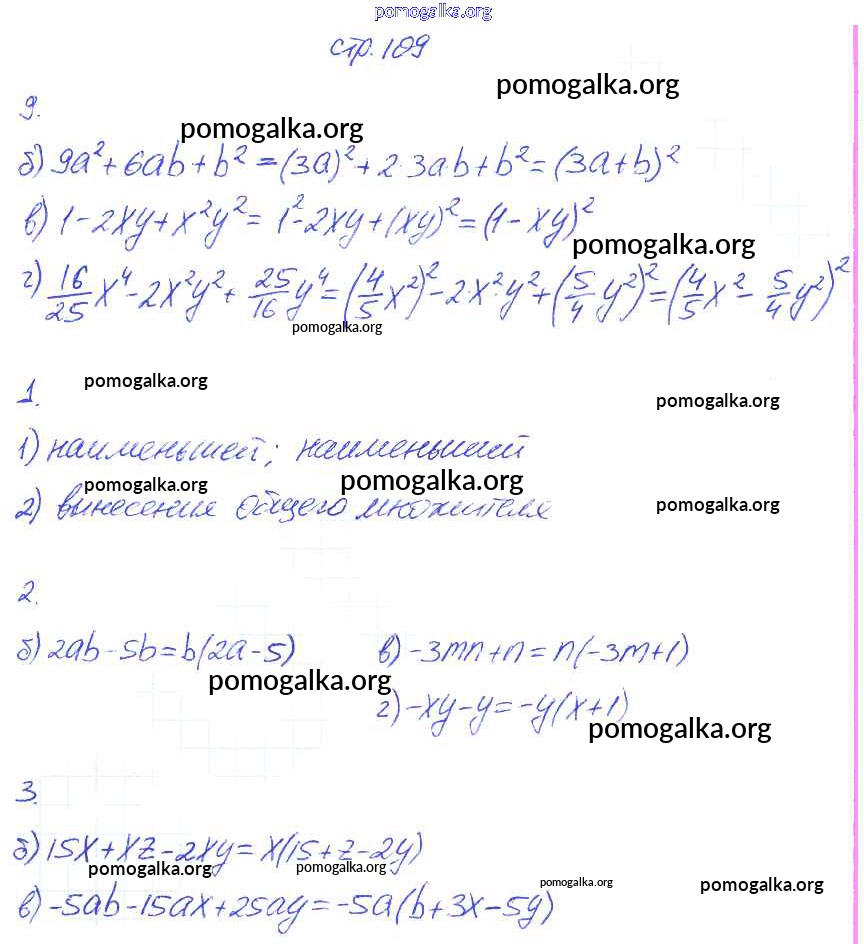 pomogalka.org
стр. 109
pomogalka.org
9.
pomogalka.org
б) 9a² + 6ab + b² = (3a)² + 2·3ab + b² = (3a+b)²
в) 1 - 2xy + x²y² = 1² - 2xy + (xy)² = (1 - xy)²
pomogalka.org
г) 16/25 x⁴ - 2x²y² + 25/16 y⁴ = (4/5 x²)² - 2·x²·y² + (5/4 y²)² = (4/5 x² - 5/4 y²)²
pomogalka.org
1.
pomogalka.org
pomogalka.org
1) наименьшей; наименьший
pomogalka.org
pomogalka.org
pomogalka.org
2) вынесения общего множителя
2.
б) 2ab - 5b = b(2a - 5)
в) -3mn + n = n(-3m + 1)
pomogalka.org
г) -xy - y = -y(x + 1)
pomogalka.org
3.
б) 15x + xz - 2xy = x(15 + z - 2y)
pomogalka.org
pomogalka.org
pomogalka.org
pomogalka.org
в) -5ab - 15ax + 25ay = -5a(b + 3x - 5y)